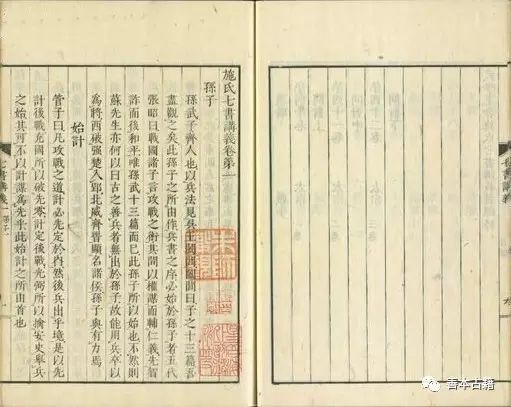 施氏七書講義卷第一
孫子
孫武子齊人也以兵法見吳王闔閭闔閭曰子之十三篇吾
盡觀之矣此孫子之所由作兵書之序必始於孫子者五代
張昭曰戰國諸子言攻戰之術其間以權謀而輔仁義先智
詐而後和平唯孫武十三篇而已此孫子所以始也不然則
蘇先生亦何以曰古之善兵者無出於孫子故能用兵卒以
為將西破強楚入郢北威齊晉顯名諸侯孫子與有力焉
始計
管子曰凡攻戰之道計必先定於內然後兵出乎境是以先
計後戰充國所以破先零計定後戰光弼所以擒安史舉兵
之始其可不以計謀為先乎此始計之所由首也
七書講義一
善本古籍